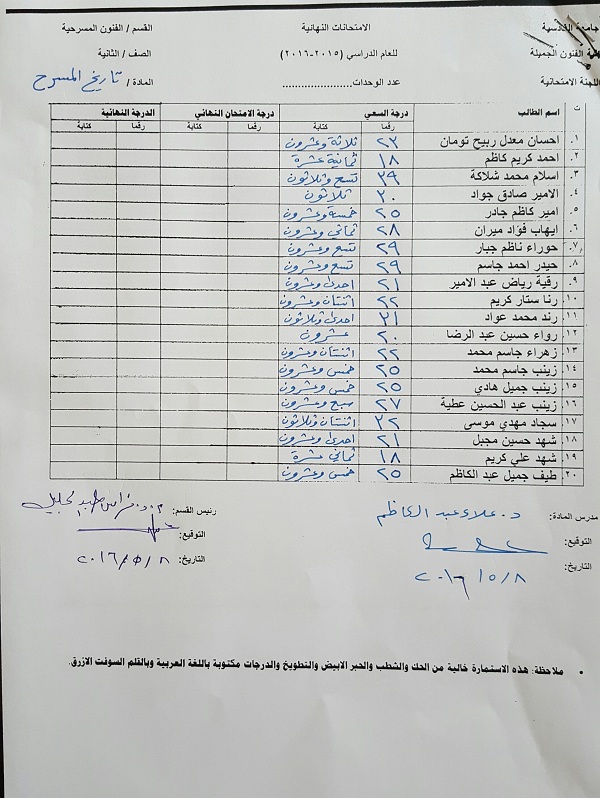 جامعة القادسية الامتحانات النهائية القسم / الفنون المسرحية
كلية الفنون الجميلة للعام الدراسي (٢٠١٥-٢٠١٦) الصف / الثانية
اللجنة الامتحانية عدد الوحدات..................... المادة / تاريخ المسرح
ت اسم الطالب درجة السعي درجة الامتحان النهائي الدرجة النهائية
رقما كتابة رقما كتابة رقما كتابة
١. احسان معدل ربيح تومان ٢٣ ثلاثة وعشرون
٢. احمد كريم كاظم ١٨ ثمانية عشرة
٣. اسلام محمد شلاكة ٣٩ تسع وثلاثون
٤. الامير صادق جواد ٣٠ ثلاثون
٥. امير كاظم جادر ٢٥ خمسة وعشرون
٦. ايهاب فؤاد ميران ٢٨ ثماني وعشرون
٧. حوراء ناظم جبار ٢٩ تسع وعشرون
٨. حيدر احمد جاسم ٢٩ تسع وعشرون
٩. رقية رياض عبد الامير ٢١ احدى وعشرون
١٠. رنا ستار كريم ٢٢ اثنتان وعشرون
١١. رند محمد عواد ٣١ احدى وثلاثون
١٢. رواء حسين عبد الرضا ٢٠ عشرون
١٣. زهراء جاسم محمد ٢٢ اثنتان وعشرون
١٤. زينب جاسم محمد ٢٥ خمس وعشرون
١٥. زينب جميل هادي ٢٥ خمس وعشرون
١٦. زينب عبد الحسين عطية ٢٧ سبع وعشرون
١٧. سجاد مهدي موسى ٣٢ اثنتان وثلاثون
١٨. شهد حسين مجبل ٢١ احدى وعشرون
١٩. شهد علي كريم ١٨ ثماني عشرة
٢٠. طيف جميل عبد الكاظم ٢٥ خمس وعشرون
مدرس المادة: د. علاء عبد الكاظم رئيس القسم:
التوقيع: التوقيع:
التاريخ: ٢٠١٦/٥/٨ التاريخ: ٢٠١٦/٥/٨
• ملاحظة: هذه الاستمارة خالية من الحك والشطب والحبر الابيض والتطويخ والدرجات مكتوبة باللغة العربية وبالقلم السوفت الازرق.